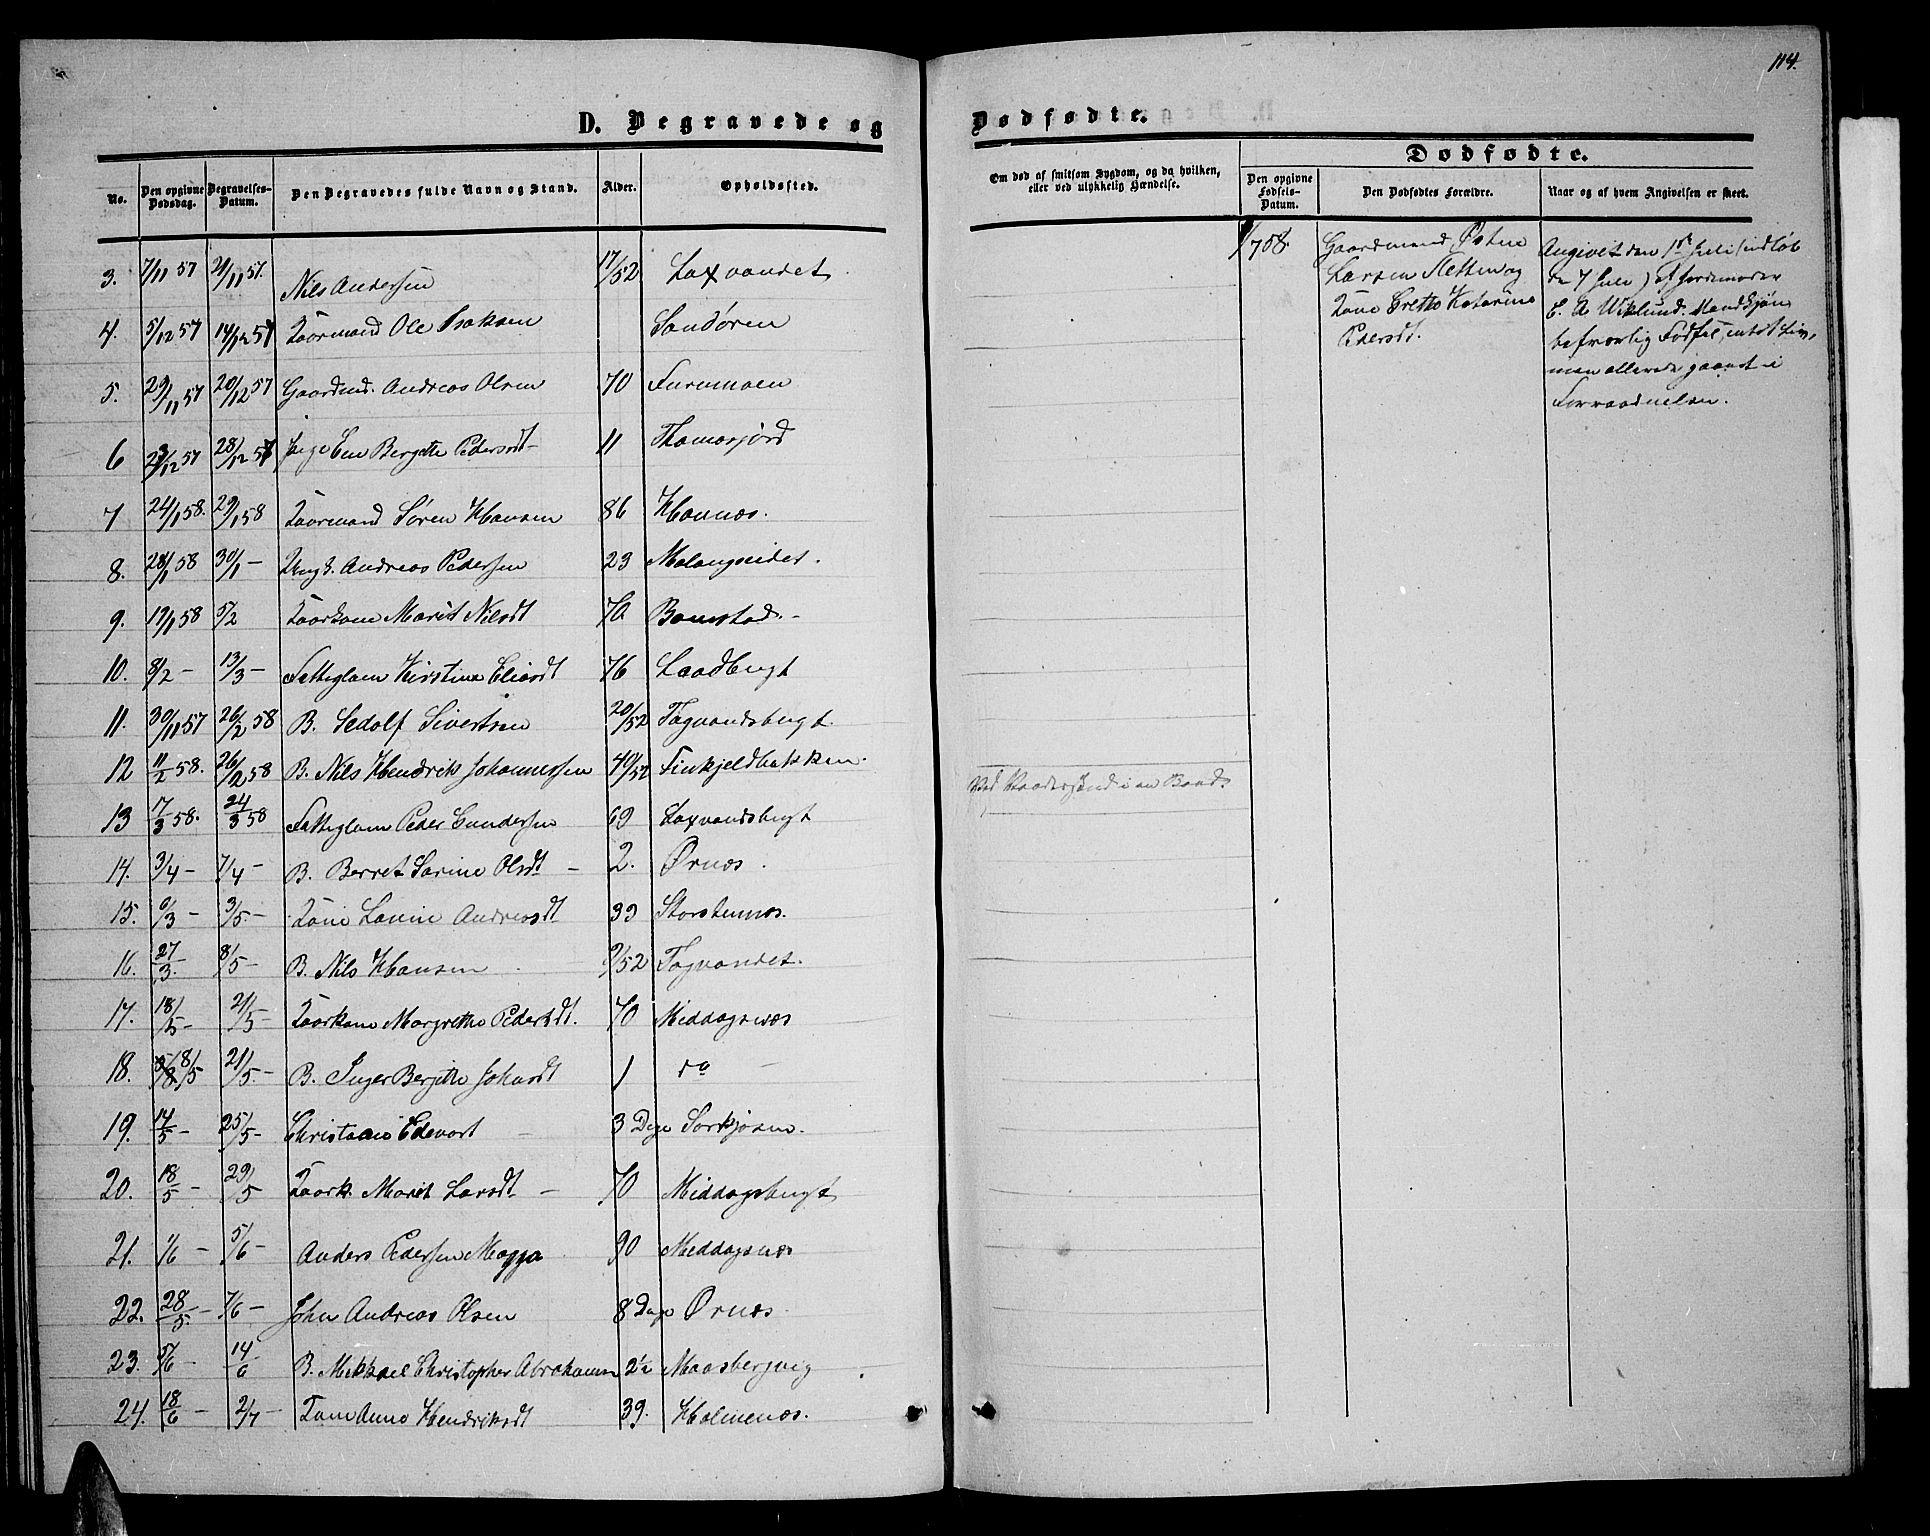 114.
D. Begravede og Dødfødte.
No. Den opgivne Dødsdag. Begravelses-Datum. Den Begravedes fulde Navn og Stand. Alder. Opholdssted.
Om død af smitsom Sygdom, og da hvilken, eller ved ulykkelig Hændelse.
Dødfødte.
Den opgivne Fødsels-Datum. Den Dødfødtes Forældre. Naar og af hvem Angivelsen er skeet.
3. 7/11 57 21/11 57. Nils Andersen 17/52 Laxvandet
4. 5/12 57 14/12 57 Kaarmand Ole Isaksen Sandøren
5. 29/11 57 20/12 57 Gaardmd. Andreas Olsen 70 Furumoen
6 23/12 57 28/12 57 Pige Ene Bergithe Pedersdt 11 Thomasjord
7 24/1 58. 29/1 58 Kaarmand Søren Hansen 86 Havnæs.
8. 28/1 58 30/1 — Ungk. Andreas Pedersen 23 Malangseidet.
9. 19/1 58 5/2 Kaarkone Marit Nilsdt 70 Bomstad.
10. 8/2 — 13/3 — Fattiglem Kirstine Eliasdt 76 Laadbugt
11. 30/11 57 26/2 58 B. Sedolf Sivertsen 20/52 Tagvandsbugt.
12 11/2 58. 26/2 58 B. Nils Hendrik Johannessen 40/52 Finkjeldbakken.
13 17/3 58. 24/3 58 Fattiglem Peder Gundersen 69 Laxvandsbugt
14. 3/4 — 7/4 — B. Berret Sarine Olsdt — 2. Ørnæs.
15. 6/3 — 3/5. — Kone Lavine Andreasdt 39 Storstennæs.
16. 27/3. 8/5 — B. Nils Hansen 9/52 Tagvandet.
17. 18/5 — 21/5 — Kaarkone Margrethe Pedersdt. 70 Middagsnæs
18. 18/5 21/5. — B. Inger Bergithe Johansdt 1 do —
19. 14/5 — 25/5 — Christiane Edevart 3 Dage Sørkjosen.
20. 18/5 — 29/5 Kaark. Marit Larsdt — 70 Middagsbugt
21. 1/6 — 5/6 — Anders Pedersen Magga 90 Middagsnæs
22. 28/5. — 7/6 — John Andreas Olsen 8 Dage Ørnæs.
23. 5/6 — 14/6 B. Mikkael Christopher Abrahamsen 2½ Maasbergvig
24. 18/6 — 2/7 — Kone Anne Hendriksdt 39. Holmenæs.
i en Baad.
1/7 58.
Gaardmand Østen
Larsen Sletten og
Kone Grethe Katarina
Pedersdt.
Angivet den 1ste Juli (indløb
de 7 Juli) af Jordemoder
E. A. Wiklund. Mandkjøn
befrærlig Fødsel, intet Liv,
men allerede gaaet i
Forraadnelse.